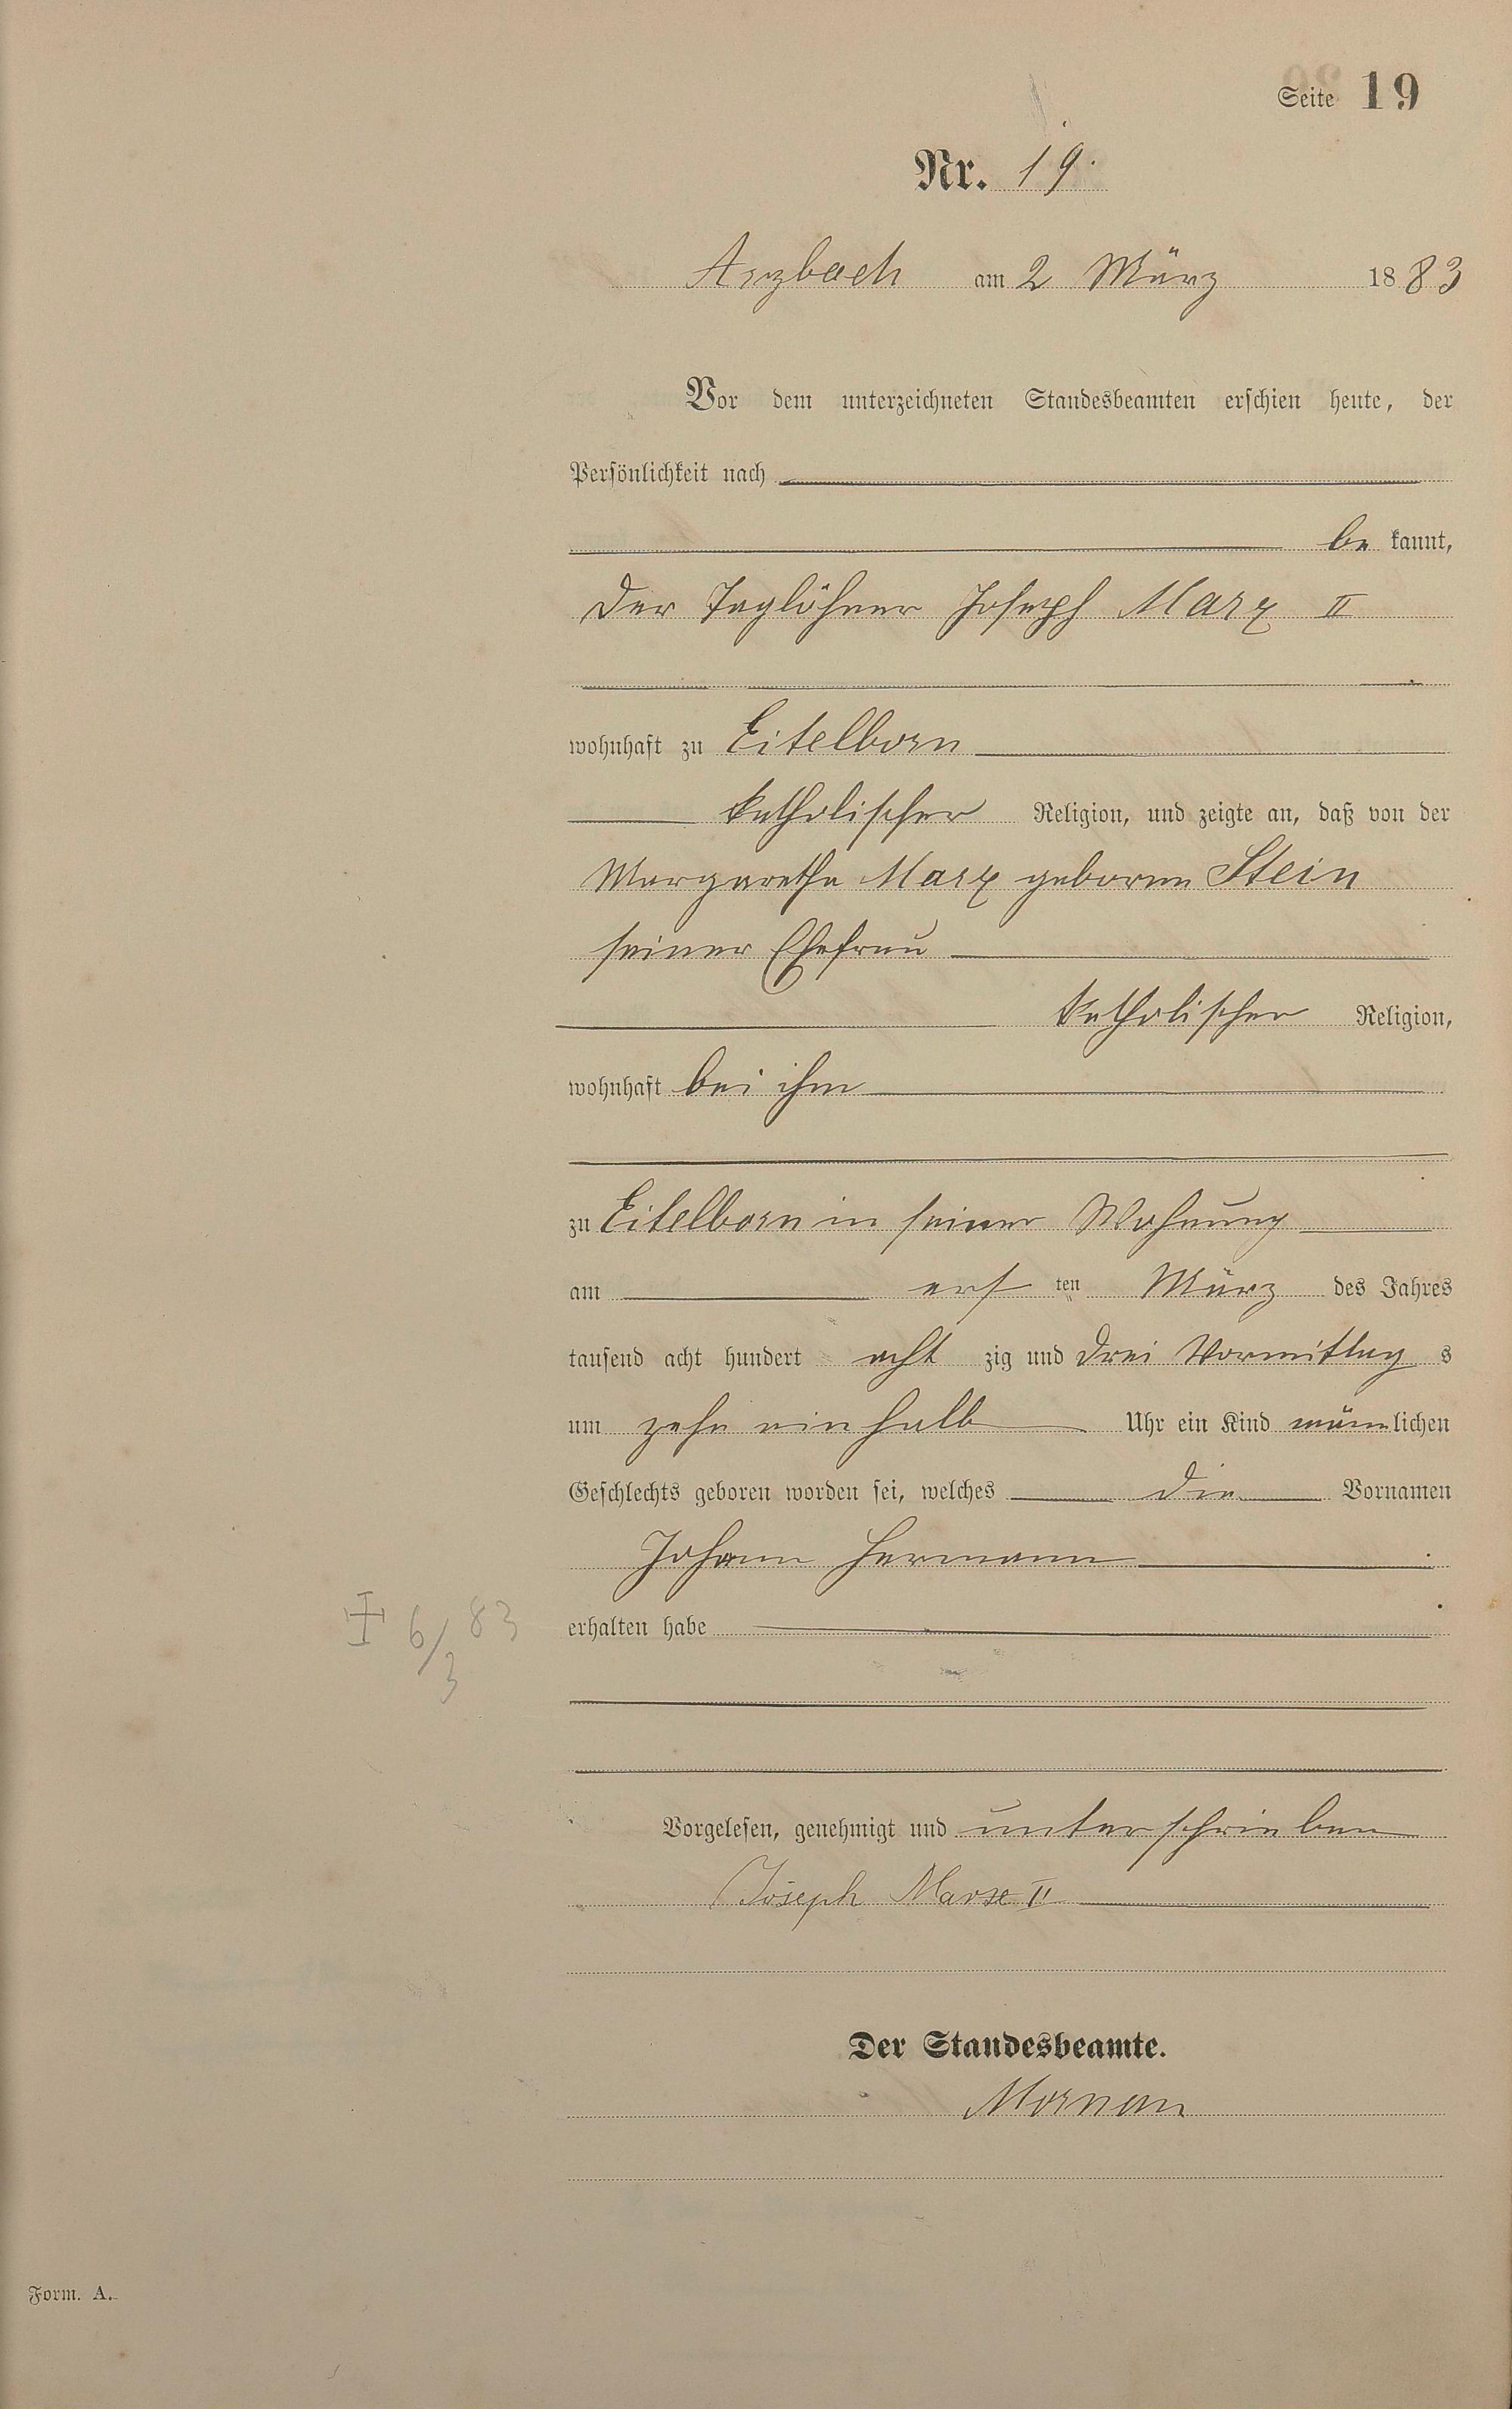 Seite 19
Nr. 19.
Arzbach am 2 März 1883
Vor dem unterzeichneten Standesbeamten erschien heute, der
Persönlichkeit nach
be kannt,
der Taglöhner Joseph Marx II
wohnhaft zu Eitelborn
katholischer Religion, und zeigte an, daß von der
Margaretha Marx geborne Stein
seiner Ehefrau
katholischer Religion,
wohnhaft bei ihm
zu Eitelborn in seiner Wohnung
am ersten März des Jahres
tausend acht hundert acht zig und drei Vormittag s
um zehn einhalb Uhr ein Kind männlichen
Geschlechts geboren worden sei, welches die Vornamen
Johann Hermann
6/3 83
erhalten habe
Vorgelesen, genehmigt und unterschrieben
Joseph Marx II
Der Standesbeamte.
Form. A.